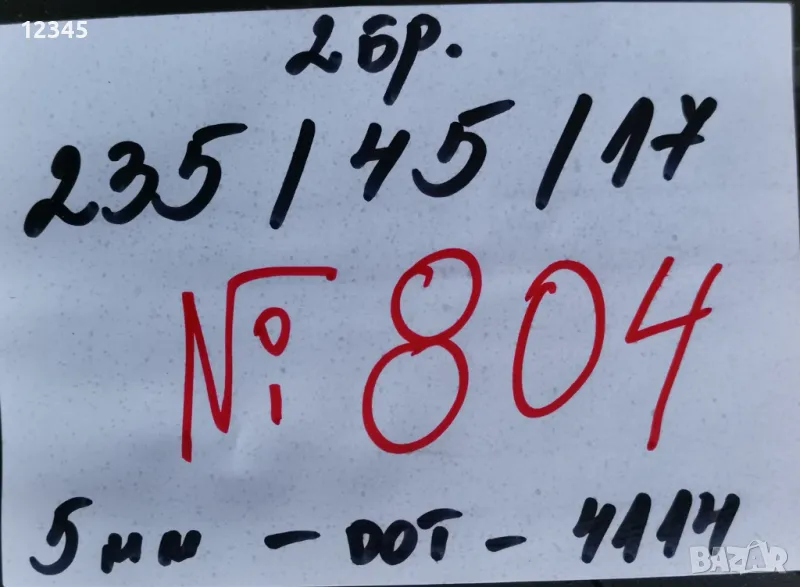 12345
2 бр.
235 / 45 / 17
№ 804
5 мм - DOT - 4114
BAZAR